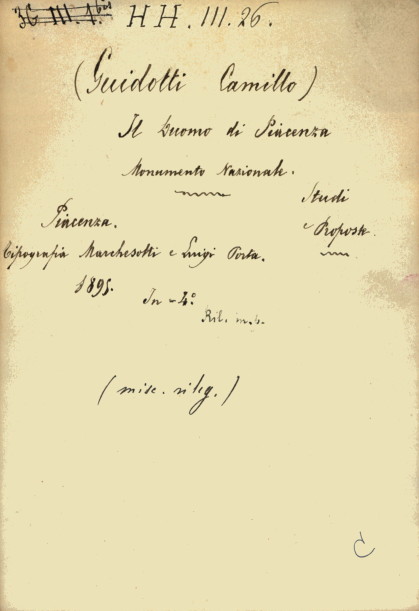 3G III. 1. bis
HH. III. 26.
(Guidotti Camillo)
Il Duomo di Piacenza
Monumento Nazionale.
Studi
e Proposte
Piacenza.
Tipografia Marchesotti e Luigi Porta.
1895.
In-4°
Ril. in
(misc. rileg.)
C